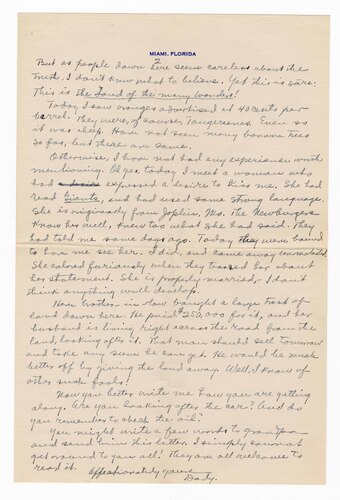 MIAMI, FLORIDA
2
But as people down here seem careless about the
truth, I don't know what to believe. Yet this is sure:
This is the Land of the many Wonders!
Today I saw oranges advertised at 40 cents per
barrel. They were, of course, tangerines. Even so
it was cheap. Have not seen many banana trees
so far, but there are some.
Otherwise, I have not had any experience worth
mentioning. Oh yes, today I meet a woman who
had a desire expressed a desire to kiss me. She had
read Giants, and had used some strong language.
She is originally from Joplin, Mo. The Newburgers
know her well, knew too what she had said. They
had told me some days ago. Today they were bound
to have me see her. I did, and came away unmolested.
She colored furiously when they teased her about
her statement. She is properly married, I don't
think anything will develop.
Her brother-in-law bought a large tract of
land down here. He paid $250,000 for it, and her
husband is living right across the road from the
land, looking after it. That man should sell tomorrow
and take any sum he can get. He would be much
better off by giving the land away. Well, I know of
other such fools!
Now you better write me how you are getting
along. Are you looking after the car? And do
you remember to check the oil?
You might write a few words to
and send him this letter. I simply cannot
get around to you all! They are all welcome to
read it.
Affectionately yours
Dady.